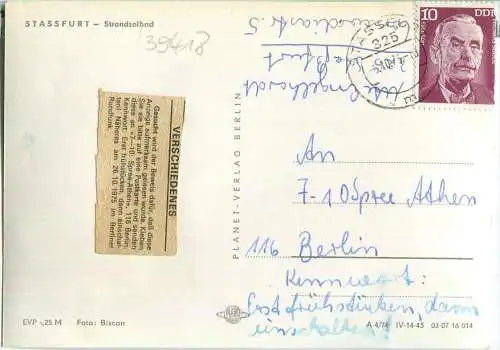 STASSFURT – Strandsolbad
39418
10
DDR
325
VERSCHIEDENES
Gesucht wird der Beweis dafür, daß diese
Anzeige aufmerksam gelesen wurde. Kleben
Sie sie bitte auf eine Postkarte und senden
diese an »7–10 Spree-Athen«, 116 Berlin,
Kennwort: Erst frühstücken, dann einschal-
ten! Näheres am 26. 10. 1975 im Berliner
Rundfunk.
PLANET-VERLAG BERLIN
An
7-10 Spree Athen
116 Berlin
Kennwort:
Erst frühstücken, dann
einschalten!
EVP -,25 M Foto: Biscan
A 4/74 IV-14-45 03 07 16 014